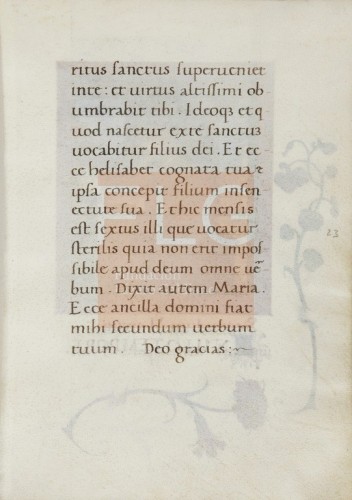 ritus sanctus superueniet
inte: et uirtus altissimi ob
umbrabit tibi. Ideoqꝫ et q
uod nascetur exte sanctuꝫ
uocabitur filius dei. Et ec
ce helisabet cognata tua ⁊
ipsa concepit filium insen
ectute sua. Et hic mensis
est sextus illi que uocatur
sterilis quia non erit impos
sibile apud deum omne uē
bum. Dixit autem Maria.
Ecce ancilla domini fiat
mihi secundum uerbum
tuum. Deo gracias:~
23